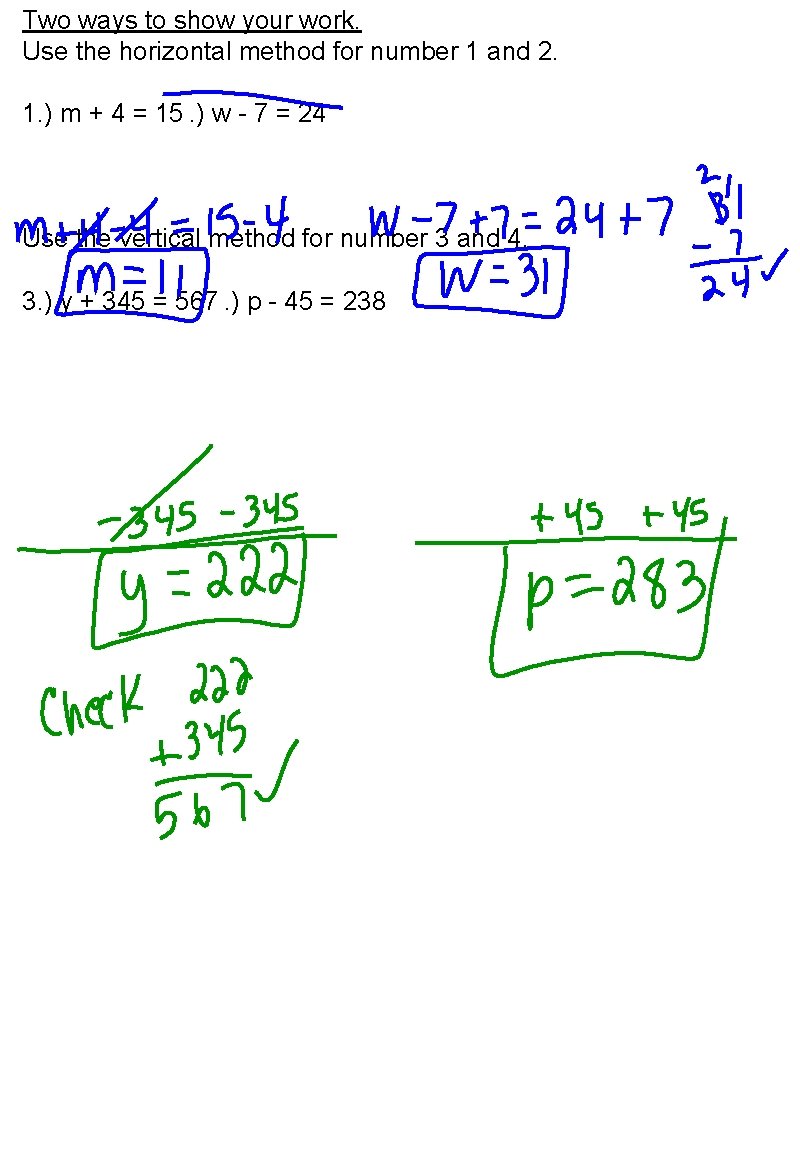 Two ways to show your work.
Use the horizontal method for number 1 and 2.
1.) m + 4 = 15 .) w - 7 = 24
m + 4 - 4 = 15 - 4
m = 11
w - 7 + 7 = 24 + 7
w = 31
2 1
31
- 7
24 ✓
Use the vertical method for number 3 and 4.
3.) y + 345 = 567 .) p - 45 = 238
- 345 - 345
y = 222
+ 45 + 45
p = 283
Check 222
+ 345
567 ✓